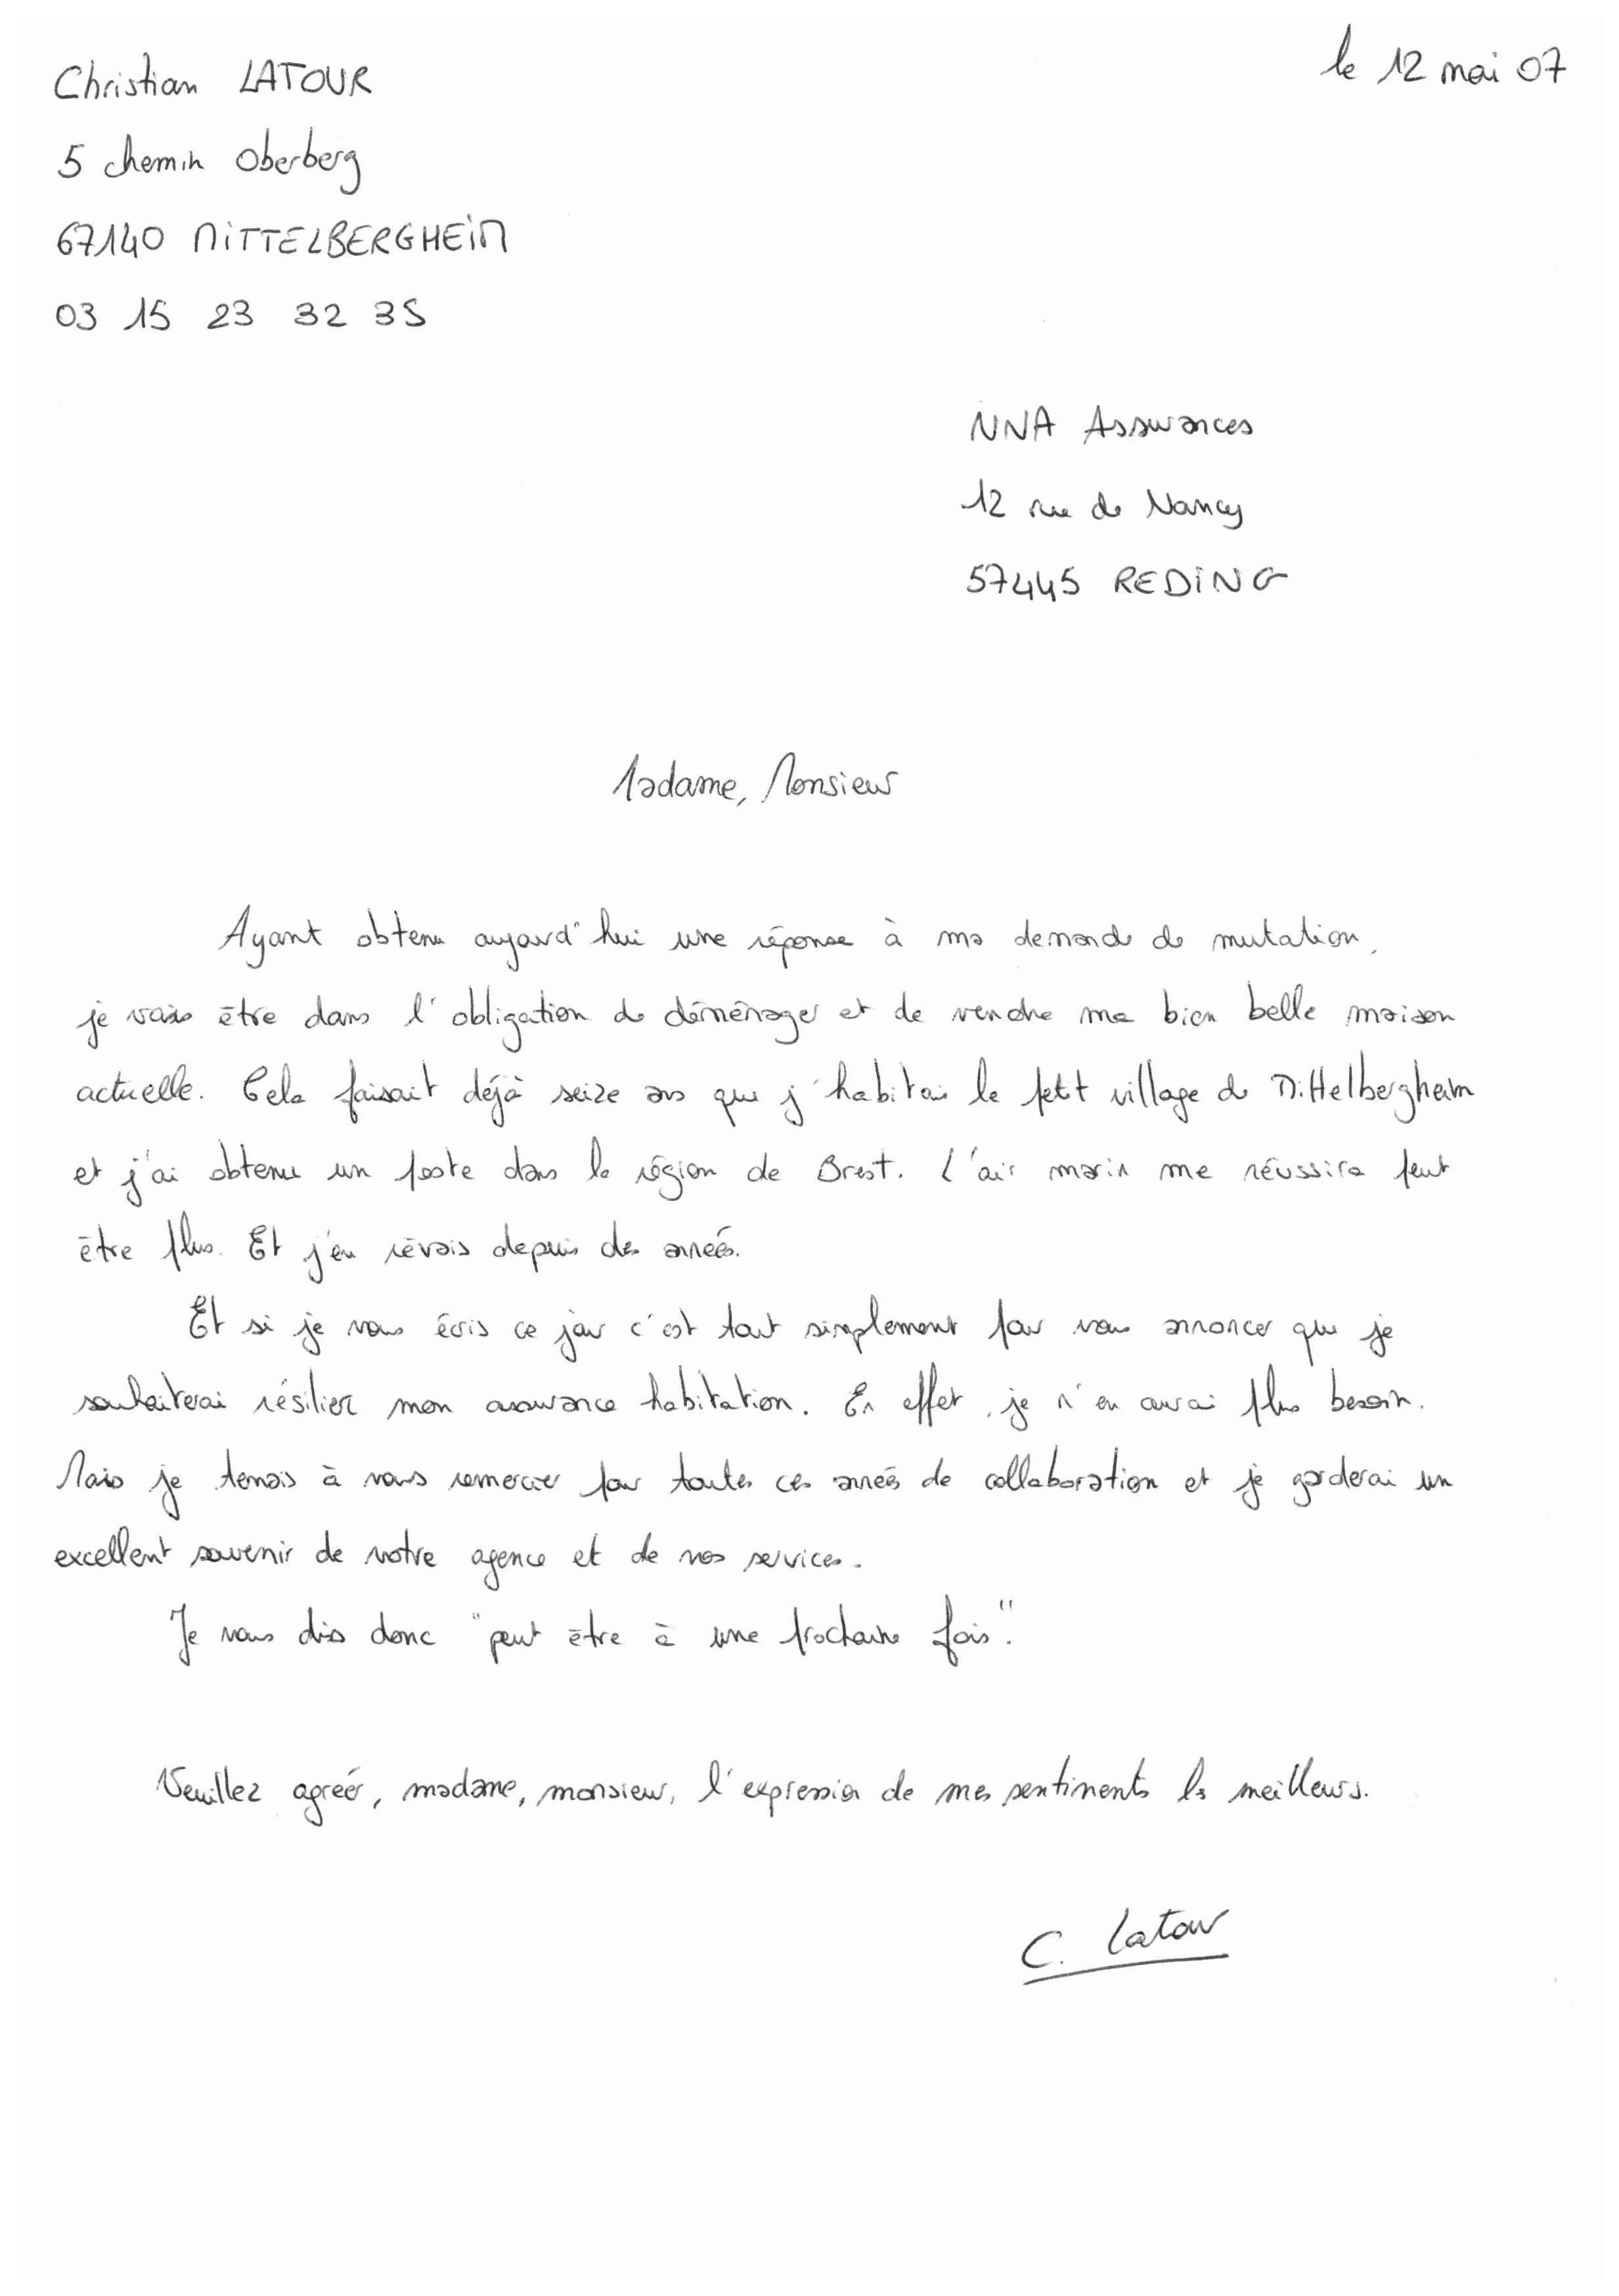 Christian LATOUR
le 12 mai 07
5 chemin Oberberg
67140 MITTELBERGHEIM
03 15 23 32 35
NNA Assurances
12 rue de Nancy
57445 REDING
Madame, Monsieur
Ayant obtenu aujourd'hui une réponse à ma demande de mutation,
je vais être dans l'obligation de déménager et de vendre ma bien belle maison
actuelle. Cela faisait déjà seize ans que j'habitais le petit village de Mittelbergheim
et j'ai obtenu un poste dans la région de Brest. L'air marin me réussira peut
être plus. Et j'en rêvais depuis des années.
Et si je vous écris ce jour c'est tout simplement pour vous annoncer que je
souhaiterai résilier mon assurance habitation. En effet, je n'en aurai plus besoin.
Mais je tenais à vous remercier pour toutes ces années de collaboration et je garderai un
excellent souvenir de votre agence et de vos services.
Je vous dis donc "peut être à une prochaine fois".
Veuillez agréér, madame, monsieur, l'expression de mes sentiments les meilleurs.
C. Latour